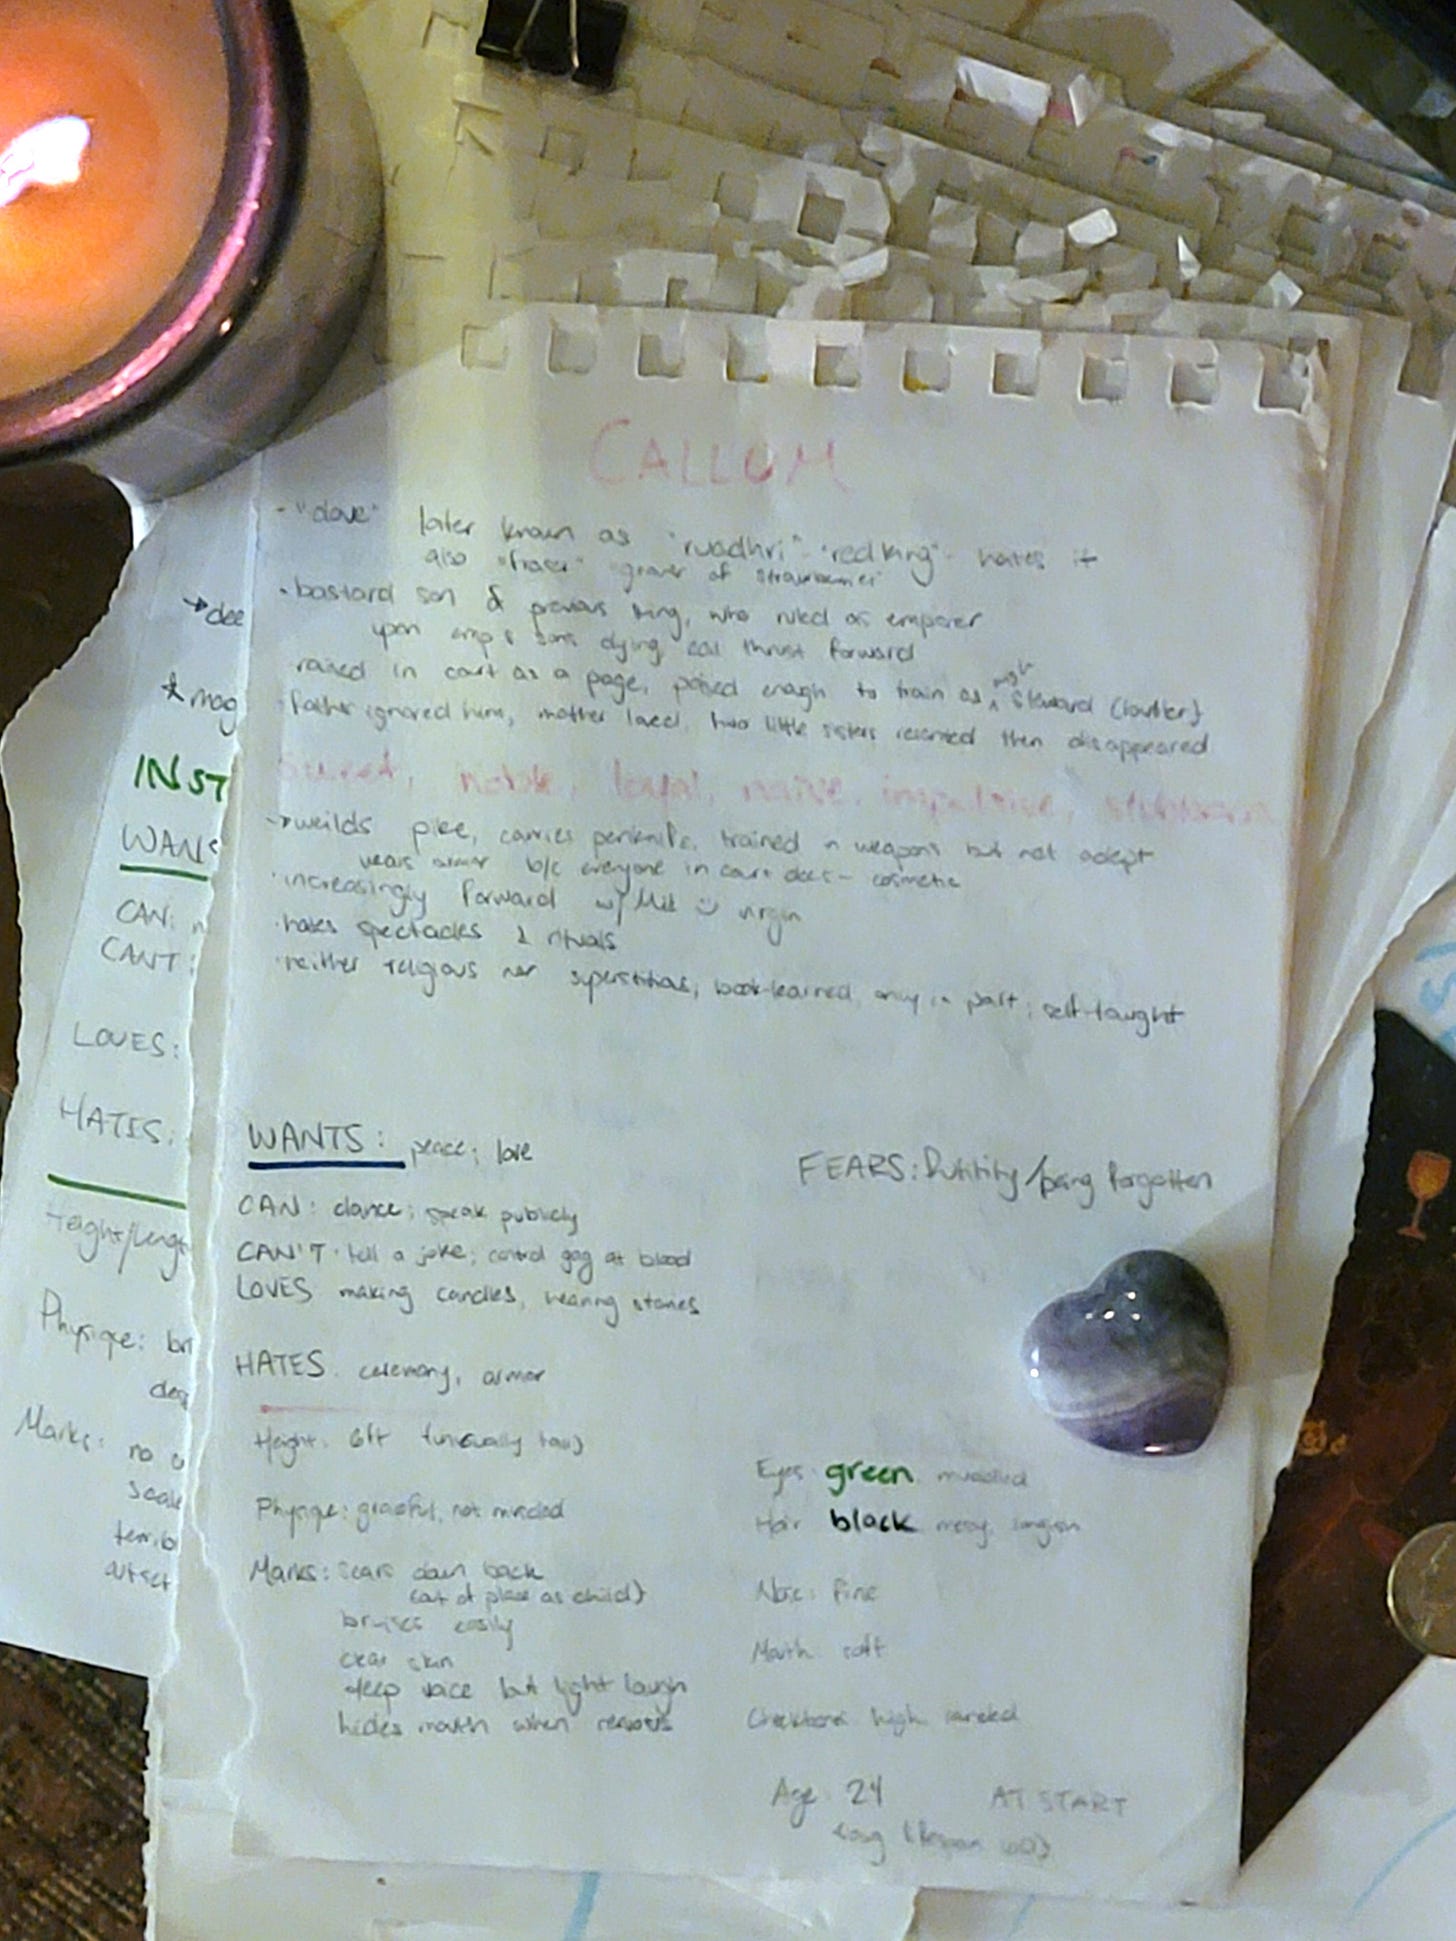 CALLUM
- "dove" later known as "ruadhri" - "red king" - hates it
also "fraser" "grower of strawberries"
- bastard son of previous king, who ruled as emperor
upon emp & sons dying cal thrust forward
raised in court as a page, poised enough to train as high steward (butler)
- father ignored him, mother loved, two little sisters resented then disappeared
sweet, noble, loyal, naive, impulsive, stubborn
→ weilds pike, carries penknife, trained in weapons but not adept
wears armor b/c everyone in court does - cosmetic
· increasingly forward w/ virgin
· hates spectacles & rituals
· neither religious nor superstitious, book-learned, only in part; self-taught
WANTS: peace; love
FEARS: /being forgotten
CAN: dance; speak publicly
CAN'T: tell a joke; control gag at blood
LOVES making candles, hearing stories
HATES: ceremony, armor
Height: 6ft (unusually tall)
Physique: graceful, not muscled
Marks: scars down back
(out of place as child)
bruises easily
clear skin
deep voice but light laugh
hides mouth when nervous
Eyes: green muddled
Hair black messy, longish
Nose: fine
Mouth: soft
Cheekbones high
Age: 24 AT START
(lifespan 60)
→ dee
* mag
INST
WANTS
CAN:
CANT:
LOVES:
HATES:
Height/Length
Physique: br
Marks: no
scale
terrib
outset